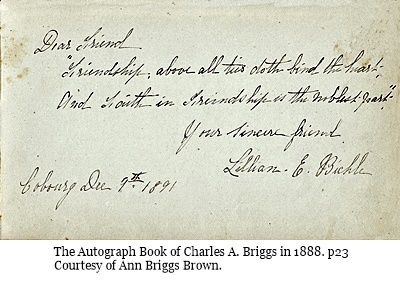 Dear Friend
"Friendship, above all ties doth bind the heart,
And Faith in Friendship is the noblest part."
Your sincere friend
Lillian E. Bickle
Cobourg Dec 9th 1891
The Autograph Book of Charles A. Briggs in 1888. p23
Courtesy of Ann Briggs Brown.